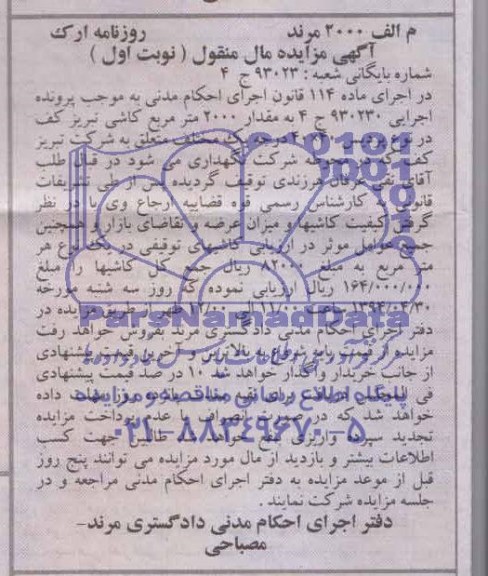 م الف ۲۰۰۰ مرند روزنامه ارک
آگهی مزایده مال منقول ( نوبت اول )
شماره بایگانی شعبه : ۹۳۰۲۳ ج ۴
در اجرای ماده ۱۱۴ قانون اجرای احکام مدنی به موجب پرونده
اجرایی ۹۳۰۲۳۰ ج ۴ به مقدار ۲۰۰۰ متر مربع کاشی تبریز کف
در نوع پرسپولیس درجه یک متعلق به شرکت تبریز
کف که در محوطه شرکت نگهداری می شود در قبال طلب
آقای تقی عرفان مرندی توقیف گردیده پس از طی تشریفات
قانونی به کارشناس رسمی قوه قضاییه ارجاع وی با در نظر
گرفتن کیفیت کاشیها و میزان عرضه و تقاضای بازار و همچنین
جمیع عوامل موثر در ارزیابی کاشیهای توقیفی در یک نوع هر
متر مربع به مبلغ ۸۲۰۰۰ ریال جمع کل کاشیها را مبلغ
۱۶۴/۰۰۰/۰۰۰ ریال ارزیابی نموده که روز سه شنبه مورخه
۱۳۹۴/۰۴/۳۰ ساعت الی ظهر از طریق مزایده در
دفتر اجرای احکام مدنی دادگستری مرند بفروش خواهد رفت
مزایده از قیمت پایه شروع به بالاترین و آخرین قیمت پیشنهادی
از جانب خریدار واگذار خواهد شد ۱۰ در صد قیمت پیشنهادی
فی المجلس داده
خواهد شد که در صورت انصراف یا عدم پرداخت مزایده
تجدید سپرده واریزی خواهد شد طالبین جهت کسب
اطلاعات بیشتر و بازدید از مال مورد مزایده می توانند پنج روز
قبل از موعد مزایده به دفتر اجرای احکام مدنی مراجعه و در
جلسه مزایده شرکت نمایند .
دفتر اجرای احکام مدنی دادگستری مرند-
مصباحی
ParsNamadData
پایگاه اطلاع رسانی مناقصه و مزایده
۰۲۱-۸۸۳۴۹۶۷۰-۵